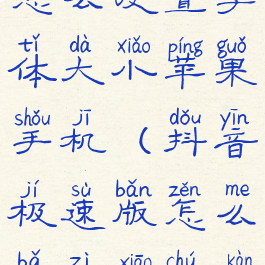 tǐ dà xiǎo píng guǒ
体大小苹果
shǒu jī dǒu yīn
手机（抖音
jí sù bǎn zěn me
极速版怎么
bǎ zì xiǎo chú kàn